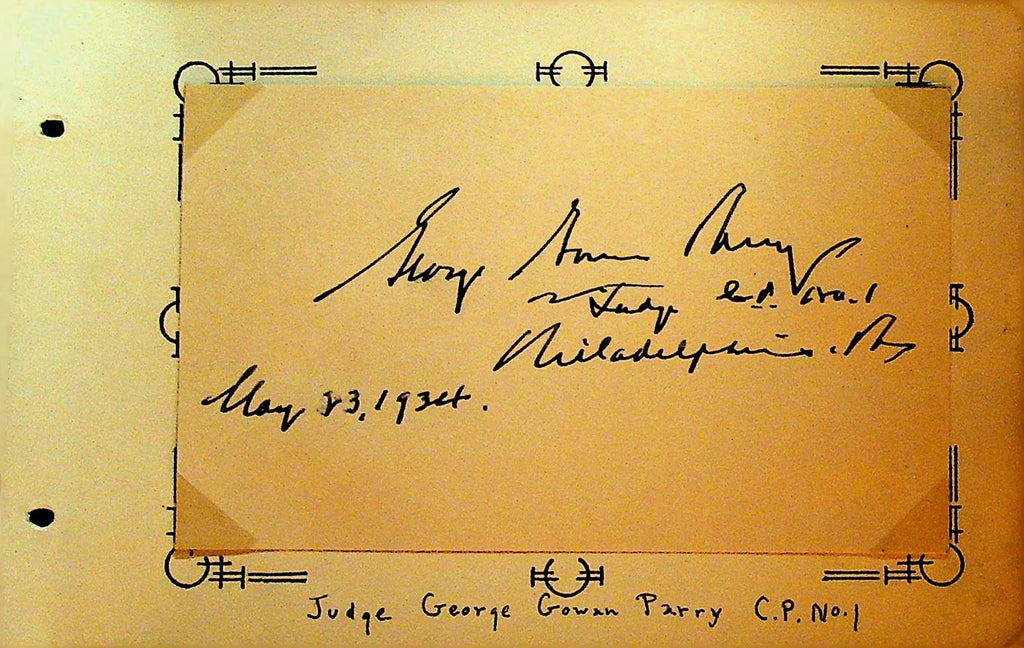 George Gowan Parry
Judge C.P. No. 1
Philadelphia. Pa
May 23, 1934.
Judge George Gowan Parry C.P. No.1